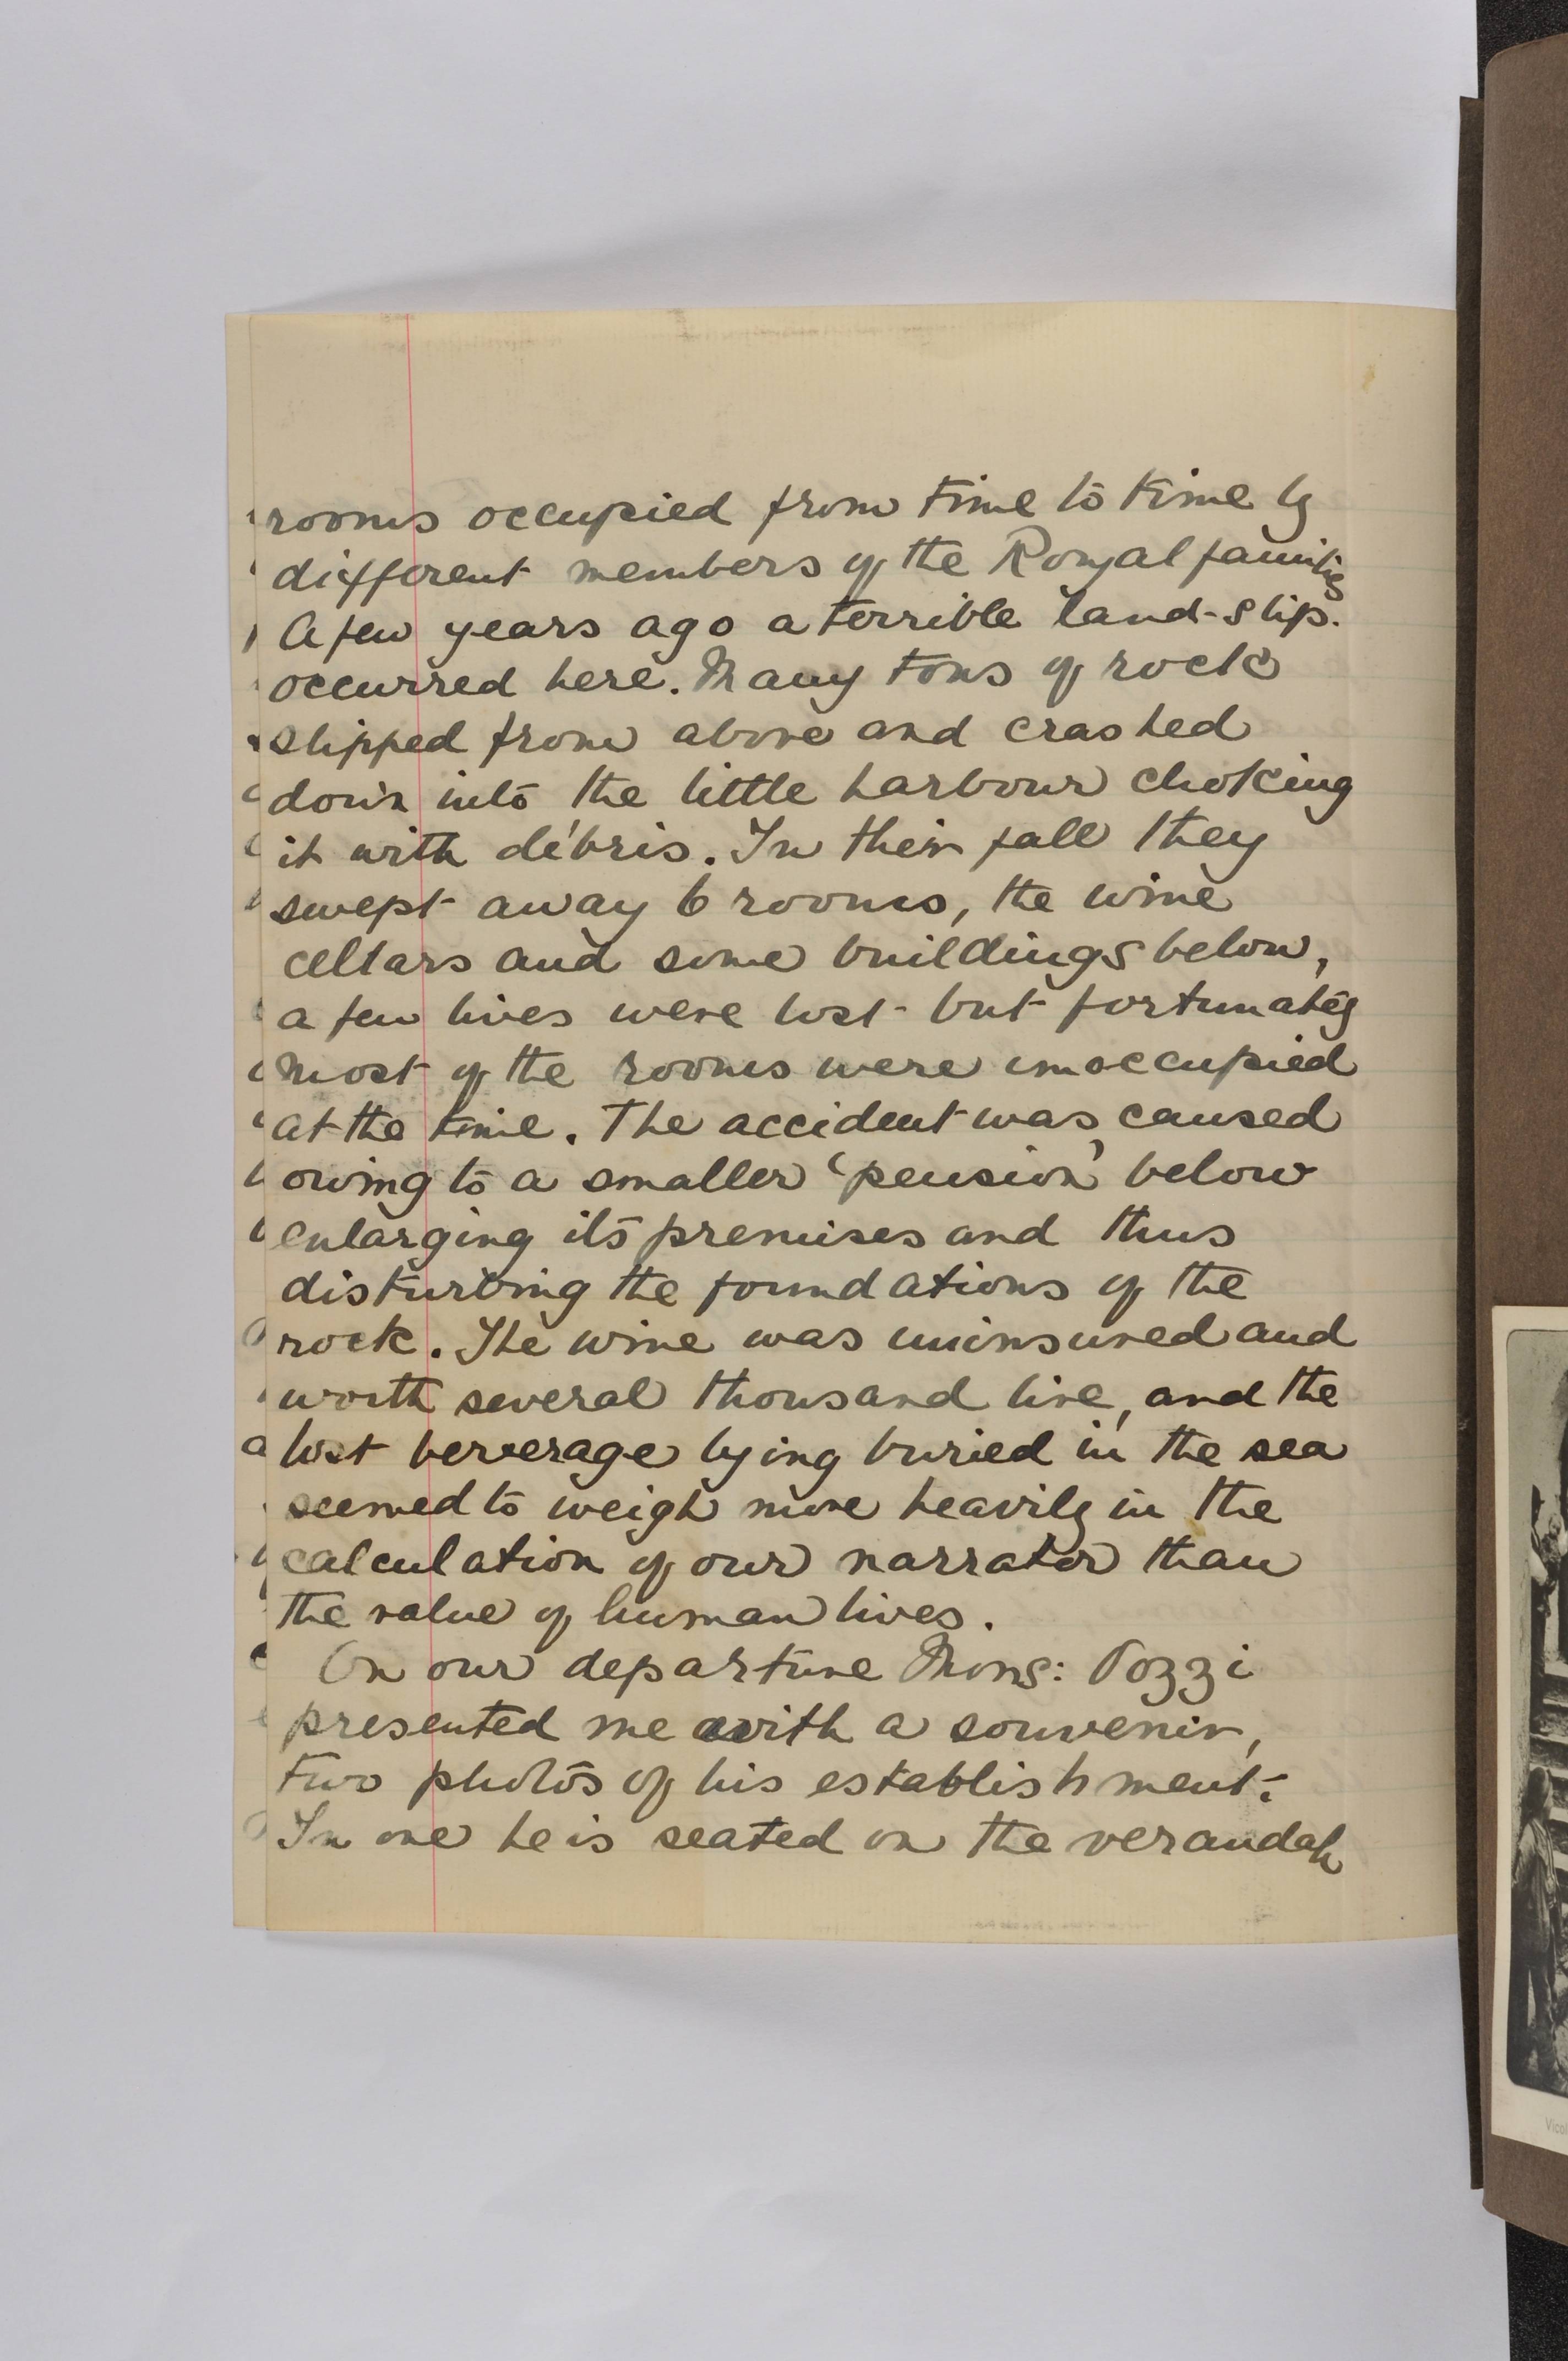 rooms occupied from time to time by
different members of the Royal families
A few years ago a terrible land-slip.
occurred here. Many tons of rock
slipped from above and crashed
down into the little harbour choking
it with débris. In their fall they
swept away 6 rooms, the wine
cellars and some buildings below,
a few lives were lost but fortunately
most of the rooms were unoccupied
at the time. The accident was caused
owing to a smaller 'pension' below
enlarging its premises and thus
disturbing the foundations of the
rock. The wine was uninsured and
worth several thousand lire, and the
lost berverage lying buried in the sea
seemed to weigh more heavily in the
calculation of our narrator than
the value of human lives.
On our departure Mons: Vozzi
presented me with a souvenir,
two photos of his establishment.
In one he is seated on the verandah